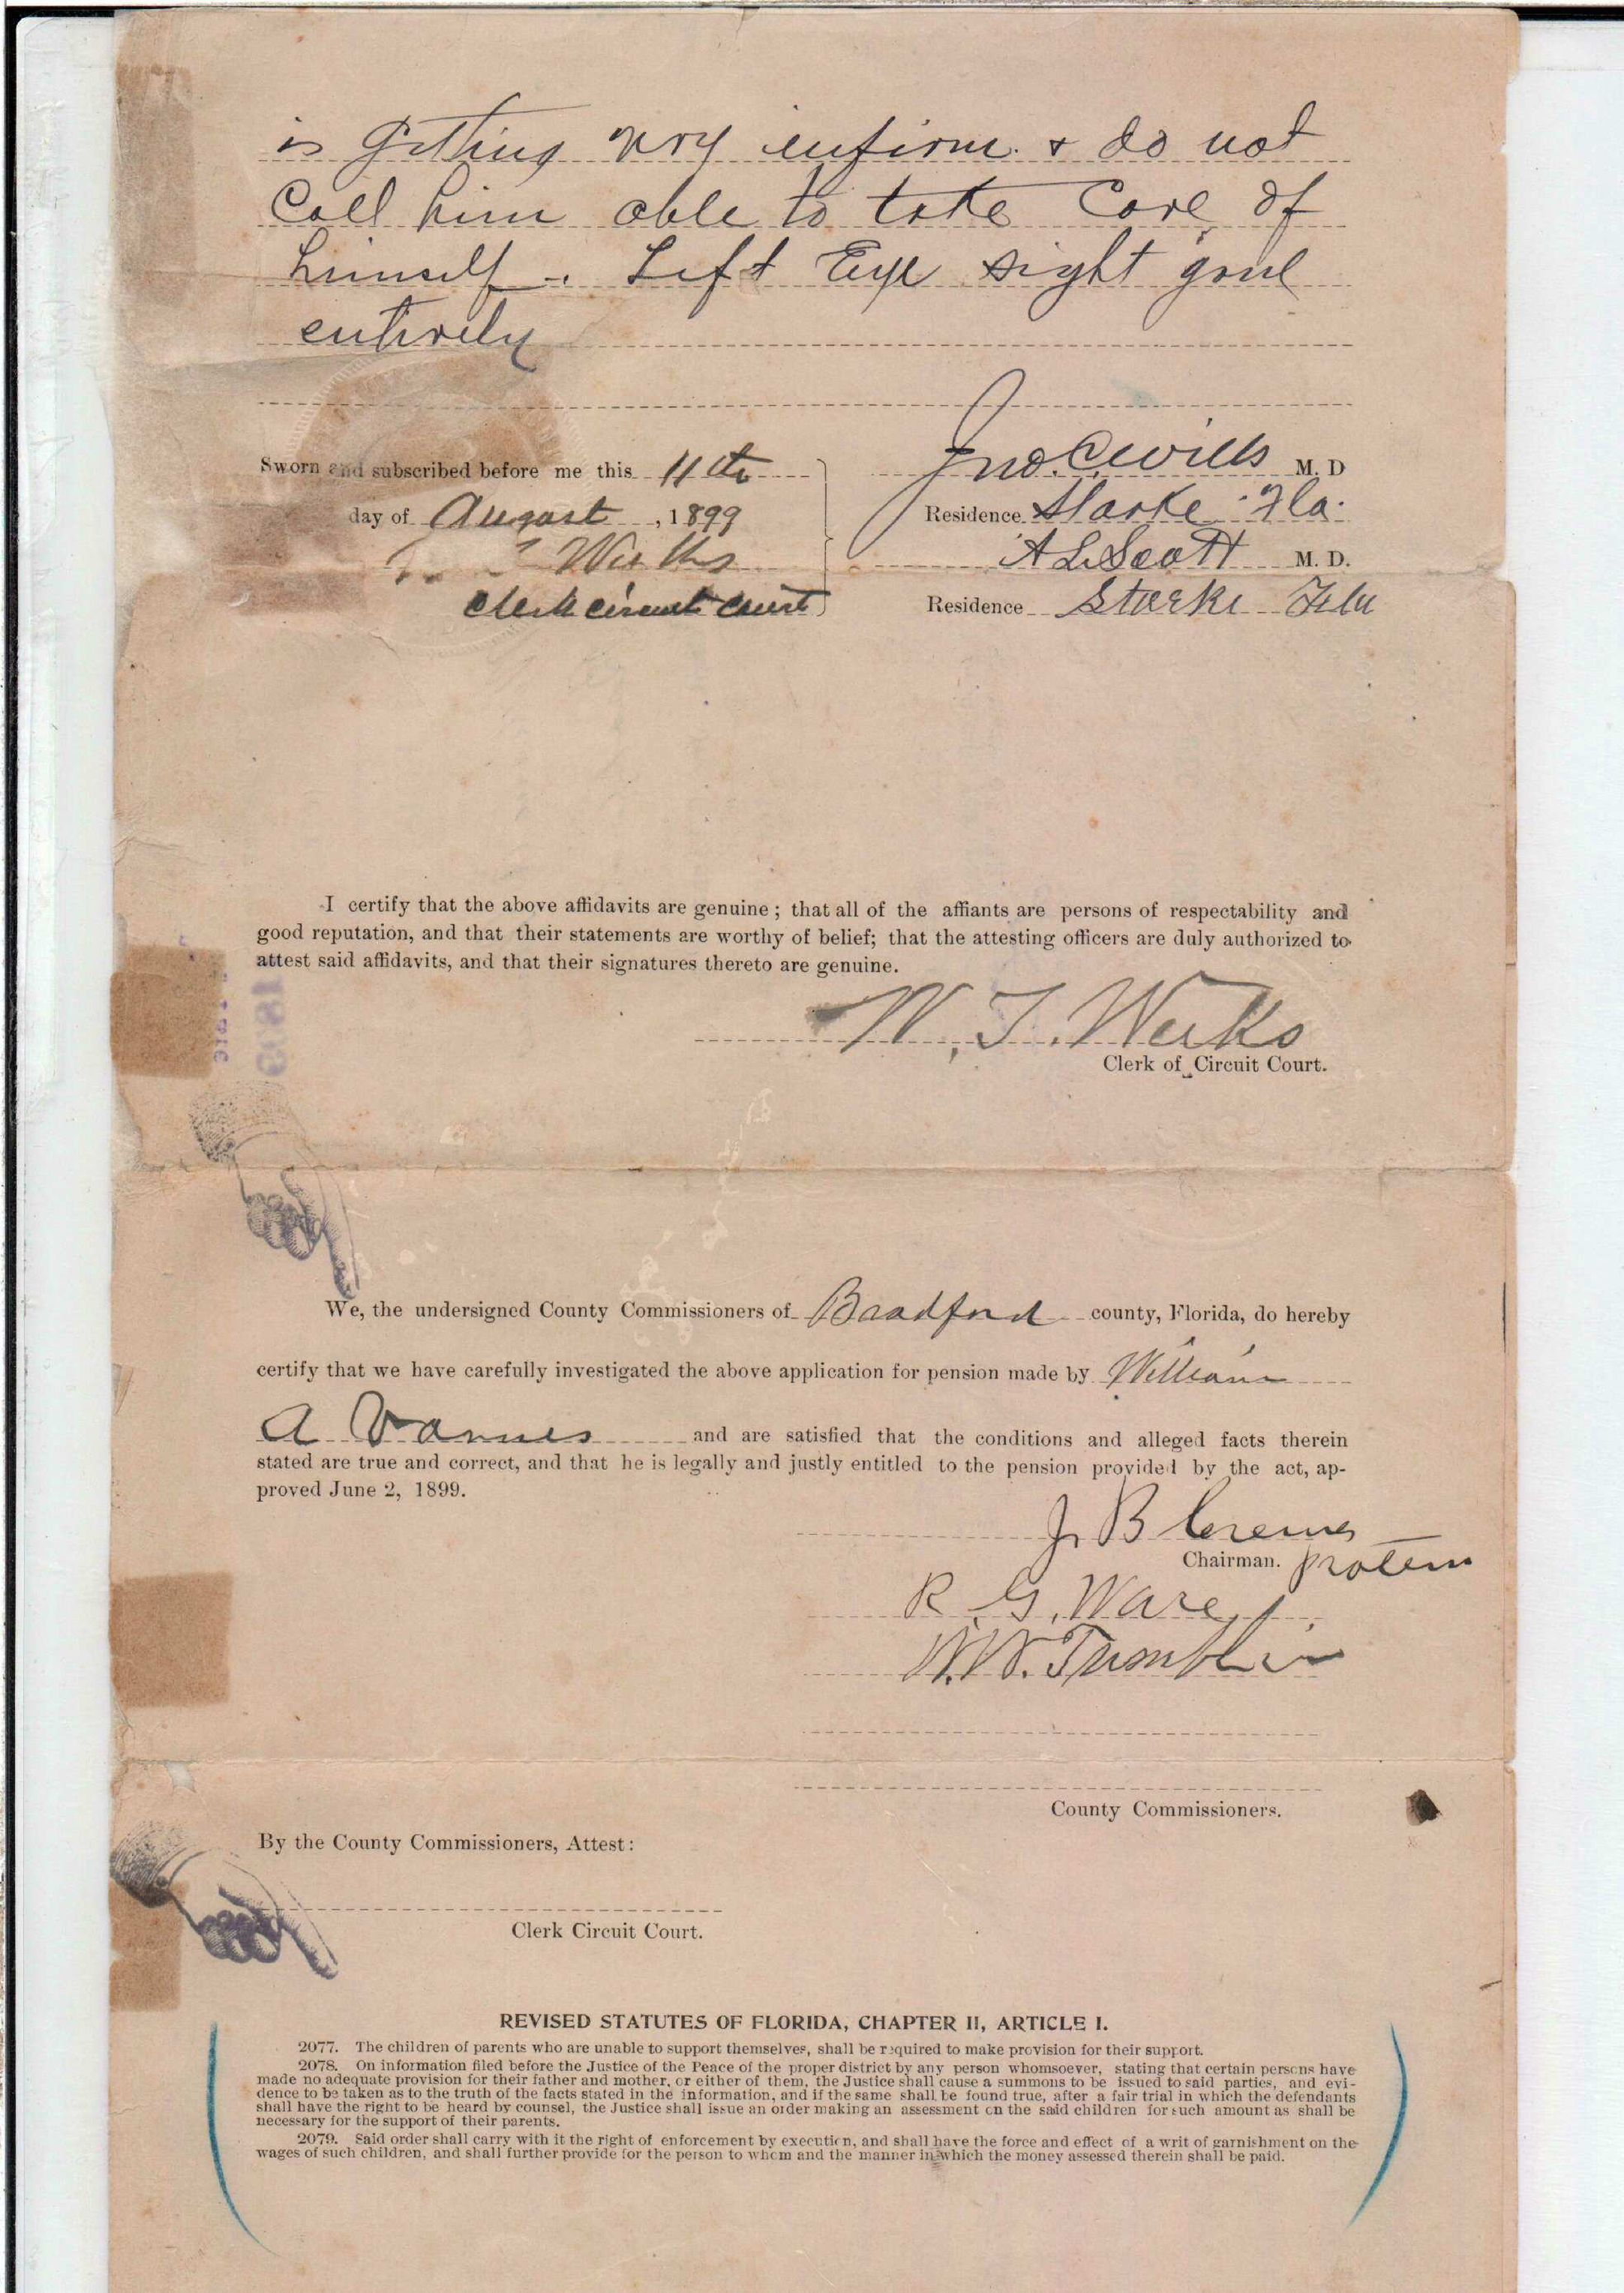 is getting very infirm. & do not
Call him able to take Care of
himself. Left Eye sight gone
entirely
Sworn and subscribed before me this 11th
day of August, 1899
Weeks
Clerk circuit court
Jno. C Wills M. D
Residence Starke Fla.
A L Scott M. D.
Residence Starke Fla
I certify that the above affidavits are genuine; that all of the affiants are persons of respectability and
good reputation, and that their statements are worthy of belief; that the attesting officers are duly authorized to
attest said affidavits, and that their signatures thereto are genuine.
1899
W. T. Weeks
Clerk of Circuit Court.
We, the undersigned County Commissioners of Bradford county, Florida, do hereby
certify that we have carefully investigated the above application for pension made by William
A and are satisfied that the conditions and alleged facts therein
stated are true and correct, and that he is legally and justly entitled to the pension provided by the act, ap-
proved June 2, 1899.
J. B
Chairman. protem
R. G. Ware
W. W. Tumblin
County Commissioners.
By the County Commissioners, Attest:
Clerk Circuit Court.
REVISED STATUTES OF FLORIDA, CHAPTER II, ARTICLE I.
2077. The children of parents who are unable to support themselves, shall be required to make provision for their support.
2078. On information filed before the Justice of the Peace of the proper district by any person whomsoever, stating that certain persons have
made no adequate provision for their father and mother, or either of them, the Justice shall cause a summons to be issued to said parties, and evi-
dence to be taken as to the truth of the facts stated in the information, and if the same shall be found true, after a fair trial in which the defendants
shall have the right to be heard by counsel, the Justice shall issue an order making an assessment on the said children for such amount as shall be
necessary for the support of their parents.
2079. Said order shall carry with it the right of enforcement by execution, and shall have the force and effect of a writ of garnishment on the
wages of such children, and shall further provide for the person to whom and the manner in which the money assessed therein shall be paid.